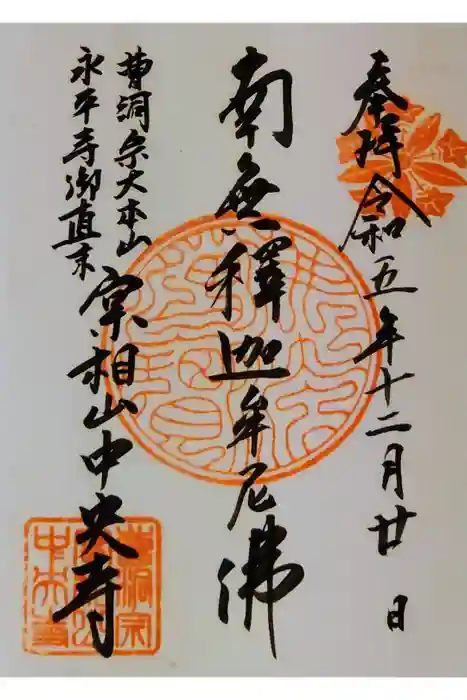 奉拝 令和五年十二月廿日
南無釋迦牟尼佛
曹洞宗大本山
永平寺御直末
實相山中央寺